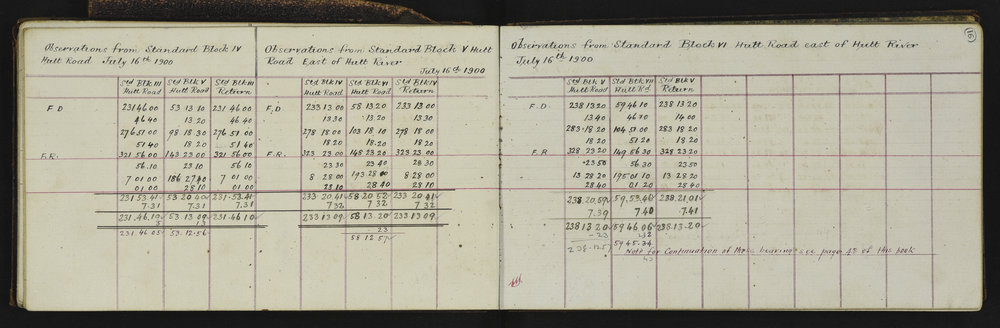 Observations from Standard Block IV
Hutt Road July 16th 1900
Std Blk III Std Blk V Std Blk III
Hutt Road Hutt Road Return
F.D 231 46 00 53 13 10 231 46 00
46 40 13 20 46 40
276 51 00 98 18 30 276 51 00
51 40 18 20 51 40
F.R. 321 56 00 143 23 00 321 56 00
56.10 23 10 56 10
7 01 00 186 27 40 7 01 00
01 00 28 10 01 00
231 53.41 53 20 40 231.53.41
7.31 7.31 7.31
231.46.10 53.13 09 231.46 10
5 13
231 46 05 53.12.56
Observations from Standard Block V Hutt
Road East of Hutt River
July 16th 1900
Std Blk IV Std Blk VI Std Blk IV
Hutt Road Hutt Road Return
F.D. 233 13 00 58 13 20 233 13 00
13 30 13 20 13 30
278 18 00 103 18 10 278 18 00
18 20 18 20 18 20
F.R. 323 23 00 148 23 20 323 23 00
23 30 23 40 23 30
8 28 00 193 28 00 8 28 00
28 10 28 40 28 10
233 20.41 58 20 52 233 20.41
7.32 7.32 7.32
233 13 09 58 13.20 233 13 09
23
58 12 57
16
Observations from Standard Block VI Hutt Road east of Hutt River
July 16th 1900
Std Blk V Std Blk VII Std Blk V
Hutt Road Hutt Rd Return
F.D. 238 13 20 59 46 10 238 13 20
13 40 46 20 14 00
283 18 20 104 51 00 283 18 20
18 20 51 20 18 20
F.R 328 23 20 149 56 30 328 23 20
23 50 56 30 23 50
13 28 20 195 01 10 13 28 20
28 40 01 20 28 40
238.20.59 59.53.46 238.21.01
7.39 7.40 7.41
238 13 20 59 46 06 238.13.20
23
238.12.57 59 45.34
Note for Continuation of these bearings see page 45 of this book